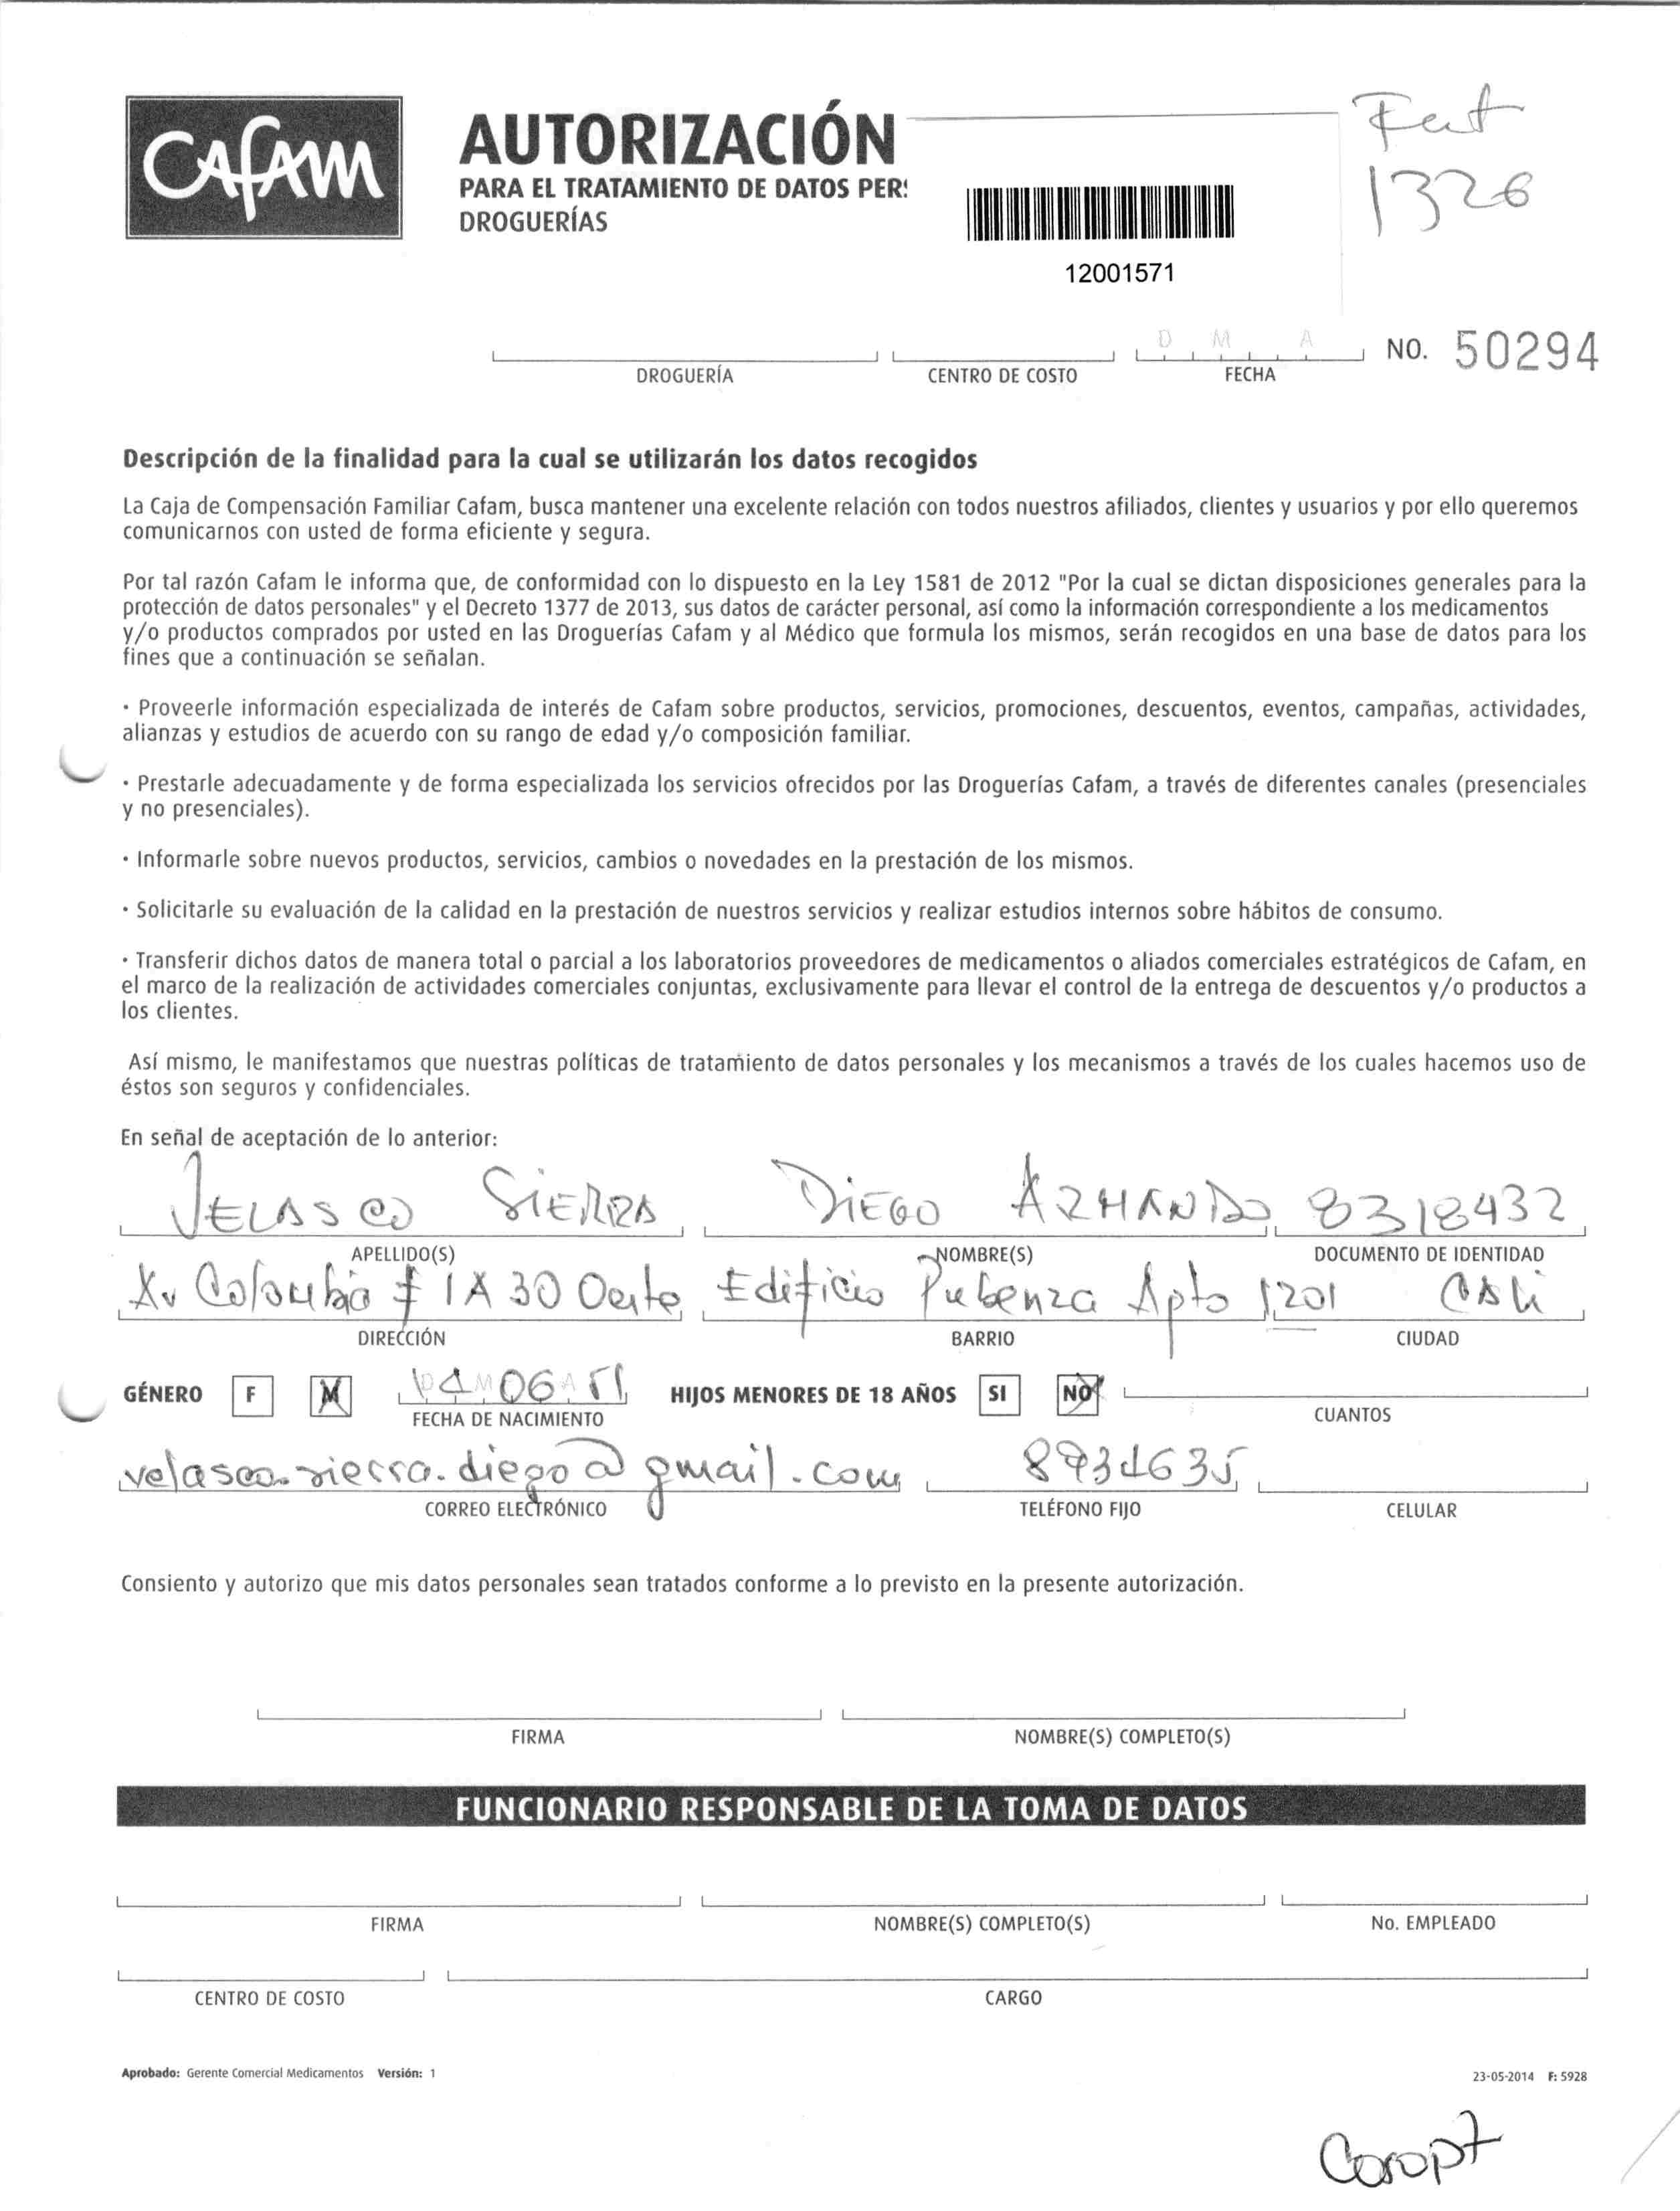 CAFAM
AUTORIZACIÓN
PARA EL TRATAMIENTO DE DATOS PER
DROGUERÍAS
1326
12001571
D M A
NO. 50294
DROGUERÍA CENTRO DE COSTO FECHA
Descripción de la finalidad para la cual se utilizarán los datos recogidos
La Caja de Compensación Familiar Cafam, busca mantener una excelente relación con todos nuestros afiliados, clientes y usuarios y por ello queremos
comunicarnos con usted de forma eficiente y segura.
Por tal razón Cafam le informa que, de conformidad con lo dispuesto en la Ley 1581 de 2012 "Por la cual se dictan disposiciones generales para la
protección de datos personales" y el Decreto 1377 de 2013, sus datos de carácter personal, así como la información correspondiente a los medicamentos
y/o productos comprados por usted en las Droguerías Cafam y al Médico que formula los mismos, serán recogidos en una base de datos para los
fines que a continuación se señalan.
· Proveerle información especializada de interés de Cafam sobre productos, servicios, promociones, descuentos, eventos, campañas, actividades,
alianzas y estudios de acuerdo con su rango de edad y/o composición familiar.
· Prestarle adecuadamente y de forma especializada los servicios ofrecidos por las Droguerías Cafam, a través de diferentes canales (presenciales
y no presenciales).
· Informarle sobre nuevos productos, servicios, cambios o novedades en la prestación de los mismos.
· Solicitarle su evaluación de la calidad en la prestación de nuestros servicios y realizar estudios internos sobre hábitos de consumo.
· Transferir dichos datos de manera total o parcial a los laboratorios proveedores de medicamentos o aliados comerciales estratégicos de Cafam, en
el marco de la realización de actividades comerciales conjuntas, exclusivamente para llevar el control de la entrega de descuentos y/o productos a
los clientes.
Así mismo, le manifestamos que nuestras políticas de tratamiento de datos personales y los mecanismos a través de los cuales hacemos uso de
éstos son seguros y confidenciales.
En señal de aceptación de lo anterior:
VELASCO SIERRA DIEGO ARMANDO 8318432
APELLIDO(S) NOMBRE(S) DOCUMENTO DE IDENTIDAD
Av Colombia # 1A 30 Oeste Edificio Pubenza Apto 1201 CALi
DIRECCIÓN BARRIO CIUDAD
GÉNERO F M 06 51 HIJOS MENORES DE 18 AÑOS SI NO
FECHA DE NACIMIENTO CUANTOS
velasco.sierra.diego@gmail.com 8931635
CORREO ELECTRÓNICO TELÉFONO FIJO CELULAR
Consiento y autorizo que mis datos personales sean tratados conforme a lo previsto en la presente autorización.
FIRMA NOMBRE(S) COMPLETO(S)
FUNCIONARIO RESPONSABLE DE LA TOMA DE DATOS
FIRMA NOMBRE(S) COMPLETO(S) No. EMPLEADO
CENTRO DE COSTO CARGO
Aprobado: Gerente Comercial Medicamentos Versión: 1
23-05-2014 F: 5928